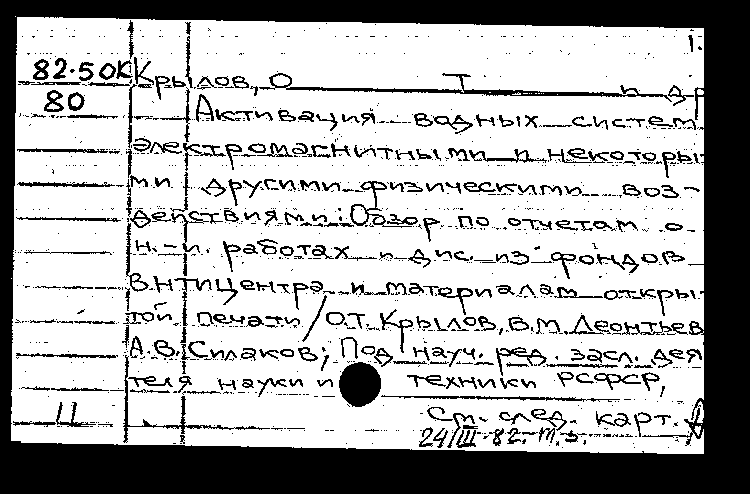 1.
82.50К Крылов, О Т и др
80 Активация водных систем
электромагнитными и некоторы-
ми другими физическими воз-
действиями: Обзор по отчетам о
н.-и. работах и дис. из фондов
ВНТИЦентра и материалам откры-
той печати / О.Т. Крылов, В.М. Леонтьев
А.В. Силаков; Под науч. ред. засл. дея
теля науки и техники РСФСР,
11 См. след. карт.
24/III-82.